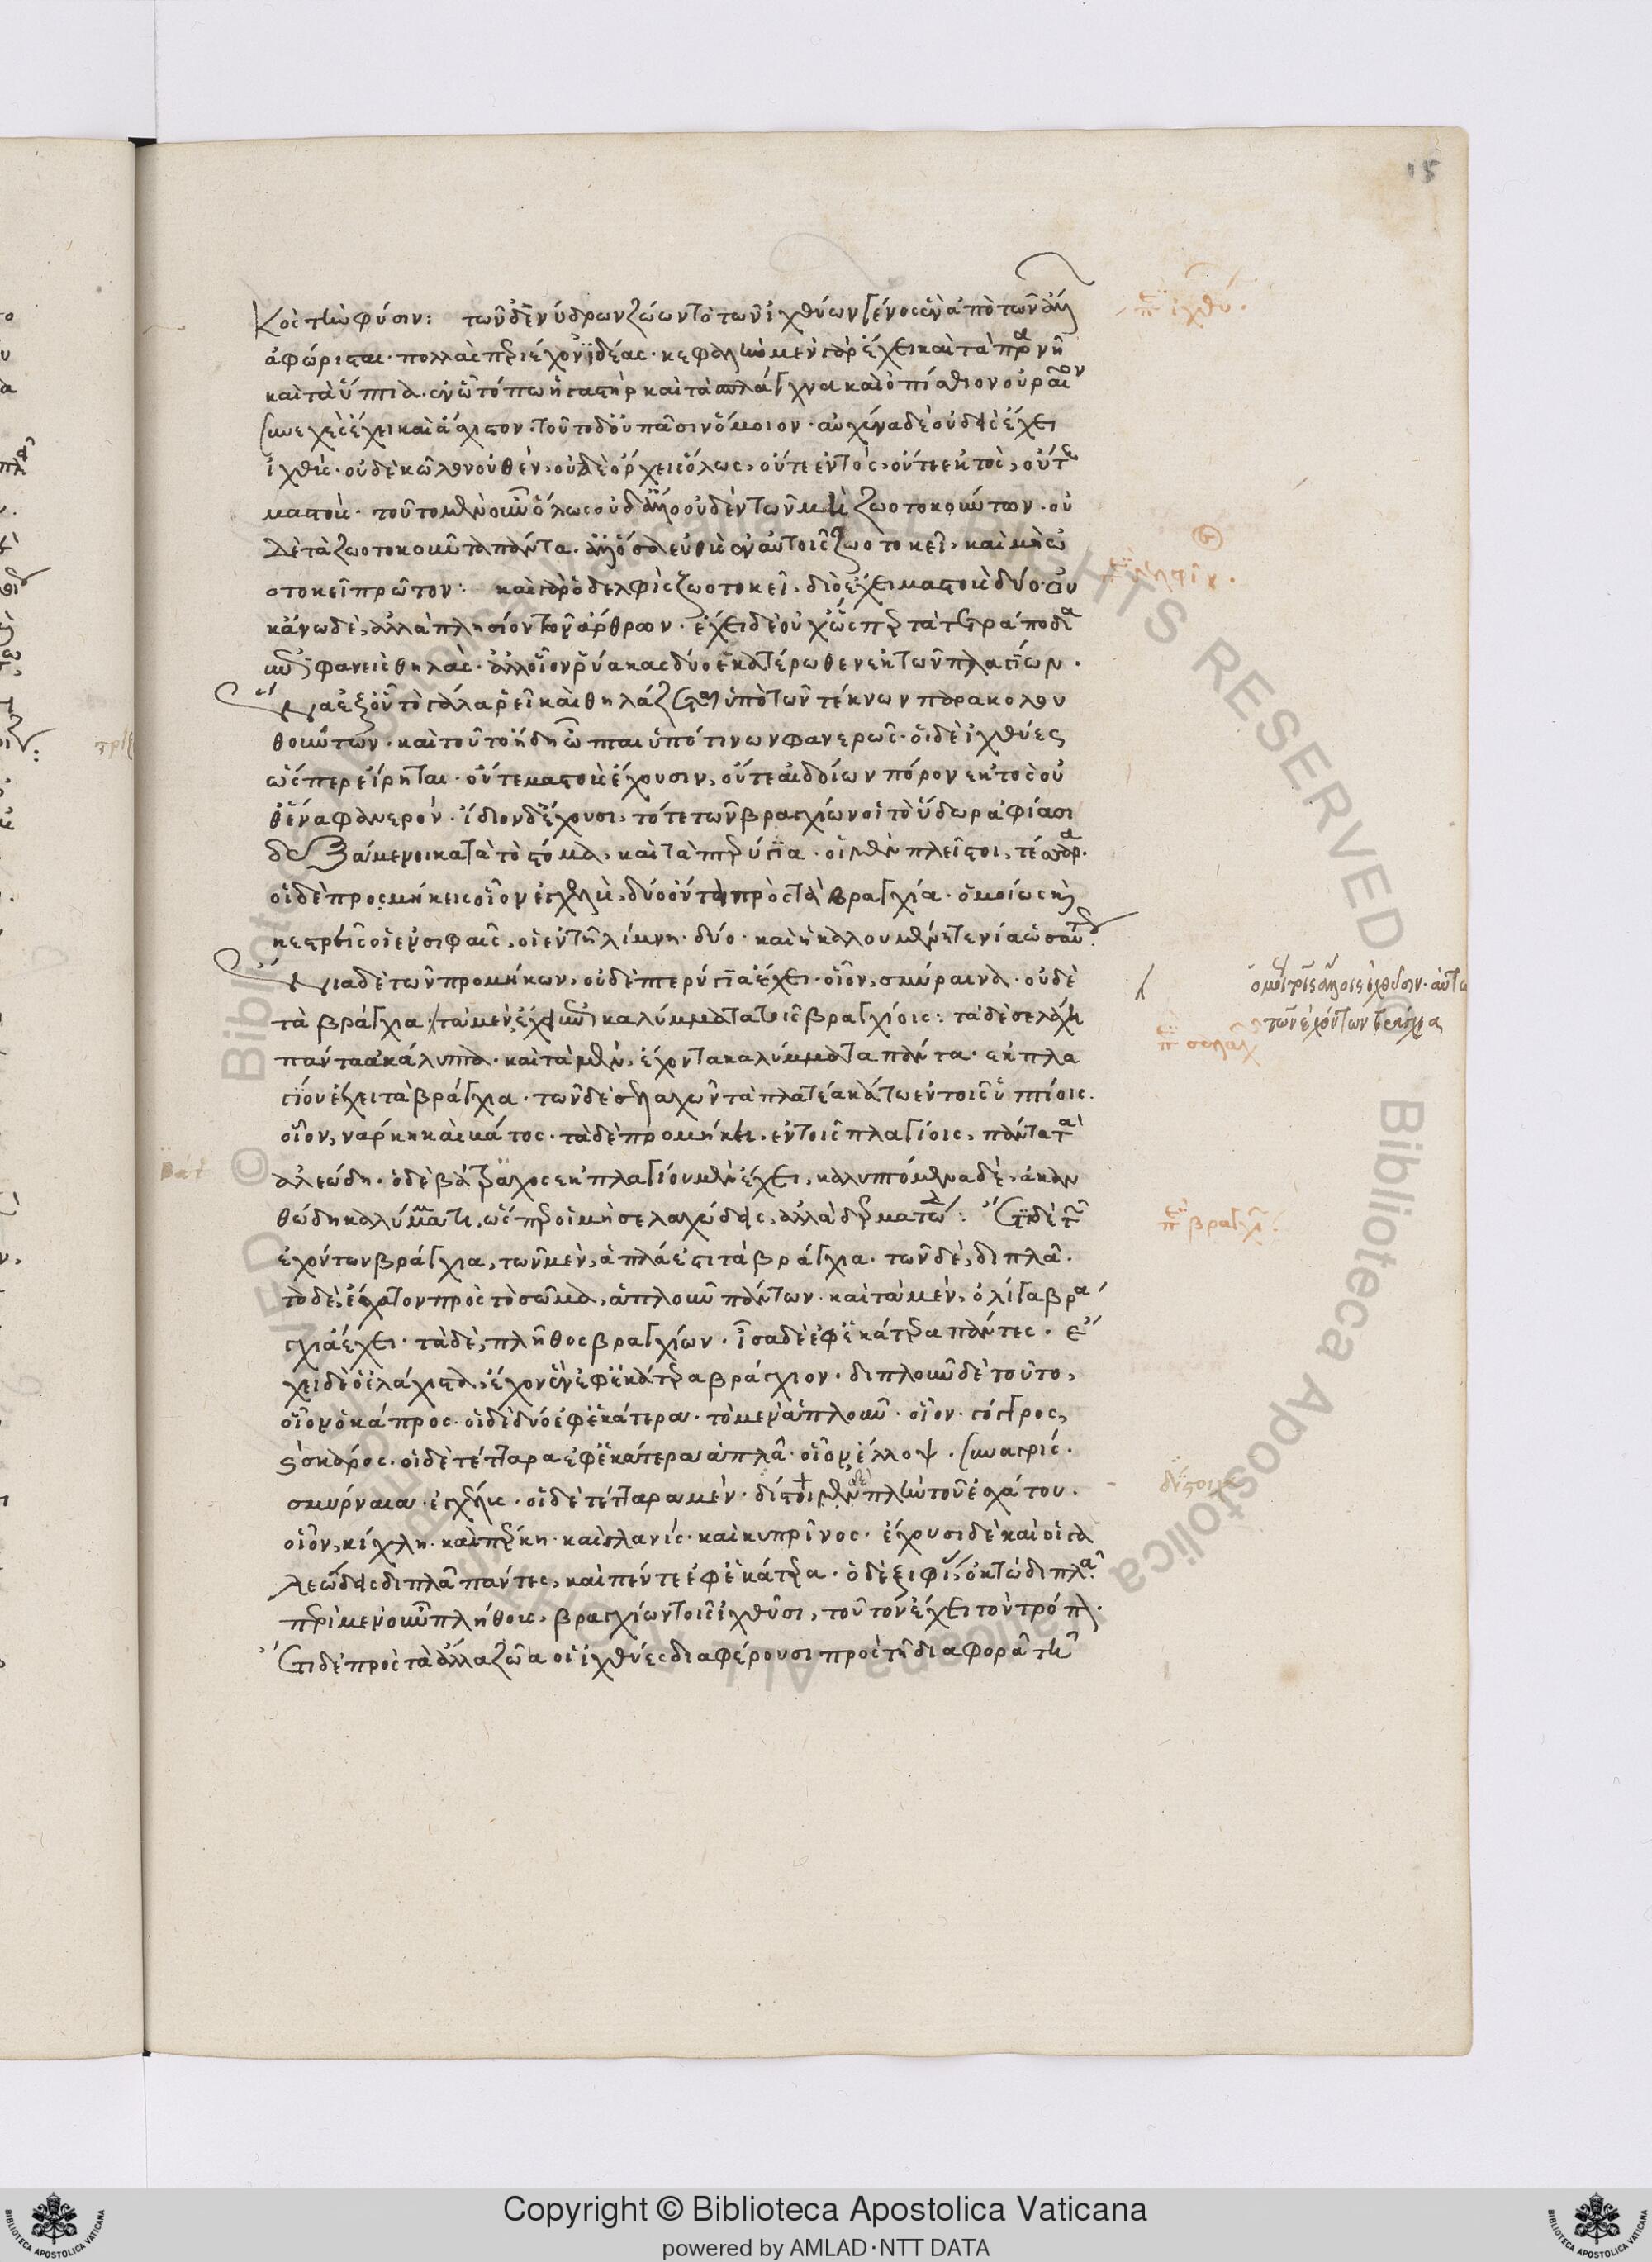 15
κὸς τὴν φύσιν: τῶν δ' ἐνύδρων ζώων τὸ τῶν ἰχθύων γένος ἓν ἀπὸ τῶν ἄλλ
ἀφώρισται· πολλὰς περιέχον ἰδέας· κεφαλὴν μὲν γὰρ ἔχει καὶ τὰ πρανῆ
καὶ τὰ ὕπτια· ἐν ᾧ τόπω ἡ γαστὴρ καὶ τὰ σπλάγχνα καὶ ὀπίσθιον οὐραῖον
συνεχὲς ἔχει καὶ ἄσχιστον· τοῦτο δ' οὐ πᾶσιν ὅμοιον· αὐχένα δὲ οὐδεὶς ἔχει
ἰχθύς· οὐδὲ κῶλον οὐθέν, οὐδὲ ὄρχεις ὅλως, οὔτε ἐντὸς, οὔτε ἐκτὸς, οὔτε
μαστούς· τοῦτο μὲν οὖν ὅλως οὐδ' ἄλλο οὐδὲν τῶν μὴ ζωοτοκούντων· οὐ
δὲ τὰ ζωοτοκοῦντα πάντα· ἀλλ' ὅσα εὐθὺς ἐν αὑτοῖς ζωοτοκεῖ, καὶ μὴ ὠ
οτοκεῖ πρῶτον: καὶ γὰρ ὁ δελφὶς ζωοτοκεῖ· διὸ ἔχει μαστοὺς δύο· οὐκ
ἄνω δὲ, ἀλλὰ πλησίον τῶν ἄρθρων· ἔχει δὲ οὐχ ὥσπερ τὰ τετράποδα
ἐπιφανεῖς θηλάς· ἀλλ' οἷον ῥύακας δύο ἑκατέρωθεν ἐκ τῶν πλαγίων·
ἕνα ἐξ ὧν τὸ γάλα ῥεῖ καὶ θηλάζεται ὑπὸ τῶν τέκνων παρακολου
θούντων· καὶ τοῦτο ἤδη ὦπται ὑπό τινων φανερῶς· οἱ δὲ ἰχθύες
ὥσπερ εἴρηται· οὔτε μαστοὺς ἔχουσιν, οὔτε αἰδοίων πόρον ἐκτὸς οὐ
θένα φανερόν· ἴδιον δ' ἔχουσι, τό τε τῶν βραγχίων οἱ τὸ ὕδωρ ἀφίασι
δεξάμενοι κατὰ τὸ στόμα, καὶ τὰ πτερύγια· οἱ μὲν πλεῖστοι, τέσσαρα·
οἱ δὲ προμήκεις οἷον ἔγχελυς, δύο ὄντα πρὸς τὰ βράγχια· ὁμοίως καὶ
κεστρεῖς οἱ ἐν σιφαῖς, οἱ ἐν τῇ λίμνη· δύο· καὶ ἡ καλουμένη τενία ὡσαύτ.
ἔνια δὲ τῶν προμήκων, οὐδὲ πτερύγια ἔχει· οἷον, σμύραινα· οὐδὲ
τὰ βράγχια· τὰ μὲν, ἔχει ἐπικαλύμματα τοῖς βραγχίοις: τὰ δὲ σελάχη
πάντα ἀκάλυπτα· καὶ τὰ μὲν, ἔχοντα καλύμματα πάντα· ἐκ πλα
γίου ἔχει τὰ βράγχια· τῶν δὲ σελαχῶν τὰ πλατέα κάτω ἐν τοῖς ὑπτίοις.
οἷον, νάρκη καὶ βάτος· τὰ δὲ προμήκη, ἐν τοῖς πλαγίοις, πάντα τὰ
γαλεώδη· ὁ δὲ βάτραχος ἐκ πλαγίου μὲν ἔχει, καλυπτόμενα δὲ, ἀκαν
θώδη καλύμματι, ὥσπερ οἱ μὴ σελαχώδεις, ἀλλὰ δερματώδει: Ἔτι δὲ τῶν
ἐχόντων βράγχια, τῶν μὲν, ἁπλά ἐστι τὰ βράγχια· τῶν δὲ, διπλᾶ·
τὸ δὲ, ἔσχατον πρὸς τὸ σῶμα, ἁπλοῦν πάντων· καὶ τὰ μὲν, ὀλίγα βρά
γχια ἔχει· τὰ δὲ, πλῆθος βραγχίων· ἴσα δὲ ἐφ' ἑκάτερα πάντες· ἔ
χει δὲ ὁ ἐλάχιστα, ἔχον ἓν ἐφ' ἑκάτερα βράγχιον· διπλοῦν δὲ τοῦτο,
οἷον ὁ κάπρος· οἱ δὲ δύο ἐφ' ἑκάτερα· τὸ μὲν ἁπλοῦν· οἷον· γόγγρος,
σκάρος· οἱ δὲ τέτταρα ἐφ' ἑκάτερα ἁπλᾶ· οἷον, ἔλλοψ· συναγρίς·
σμύραινα· ἔγχελυς· οἱ δὲ τέτταρα μὲν· δίστοιχα δὲ πλὴν τοῦ ἐσχάτου·
οἷον, κίχλη· καὶ πέρκη· καὶ γλανίς· καὶ κυπρῖνος· ἔχουσι δὲ καὶ οἱ γα
λεώδεις διπλᾶ πάντες, καὶ πέντε ἐφ' ἑκάτερα· ὁ δὲ ξιφίας, ὀκτὼ διπλᾶ·
περὶ μὲν οὖν πλήθους, βραγχίων τοῖς ἰχθῦσι, τοῦτον ἔχει τὸν τρόπ.
Ἔτι δὲ πρὸς τὰ ἄλλα ζῶα οἱ ἰχθύες διαφέρουσι πρὸς τῇ διαφορᾷ τῇ
περὶ ἰχθύ.
περὶ δελφίν.
περὶ βραγχί
Copyright © Biblioteca Apostolica Vaticana
powered by AMLAD·NTT DATA